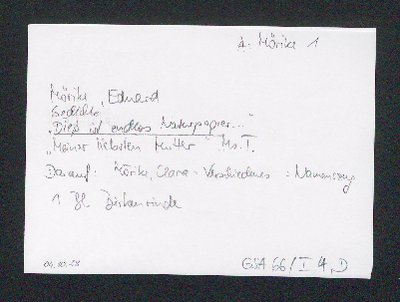 A: Mörike 1
Mörike, Eduard
Gedichte
"Dieß ist endlos Naturpapier..."
"Meiner liebsten Mutter" Ms. T.
Darauf: Mörike, Clara: Verschiedenes: Namenszug
1 Bl. Birkenrinde
GSA 66/I 4, D